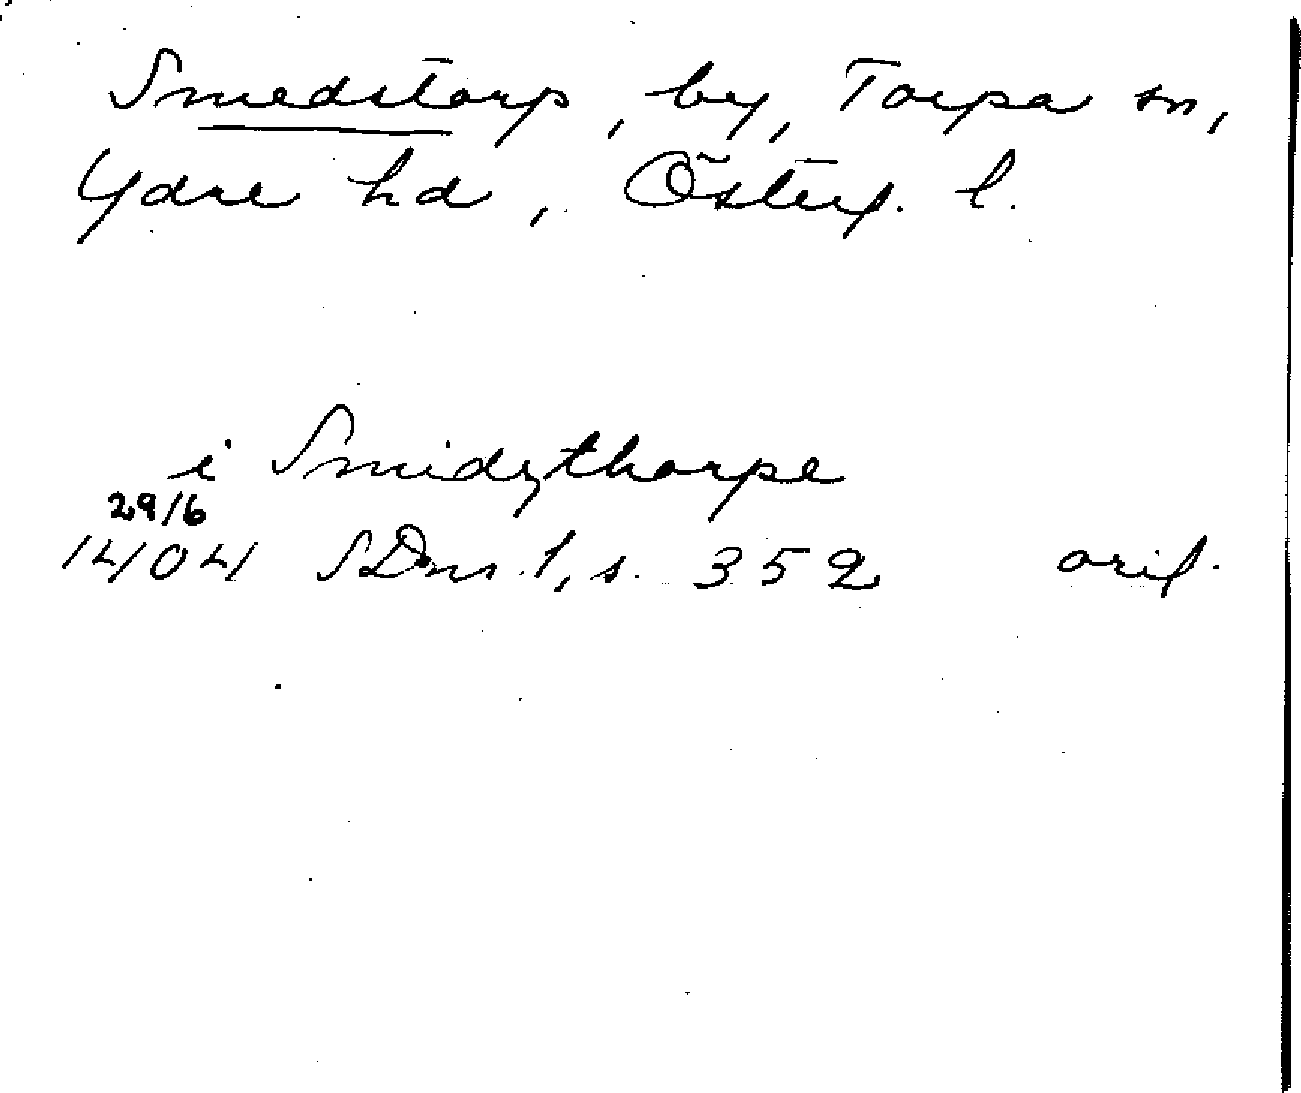 Smedstorp, by, Torpa sn,
Ydre hd, Österg. l.
i Smidzthorpe
29/6
1404 SDns 1, s. 352 orig.